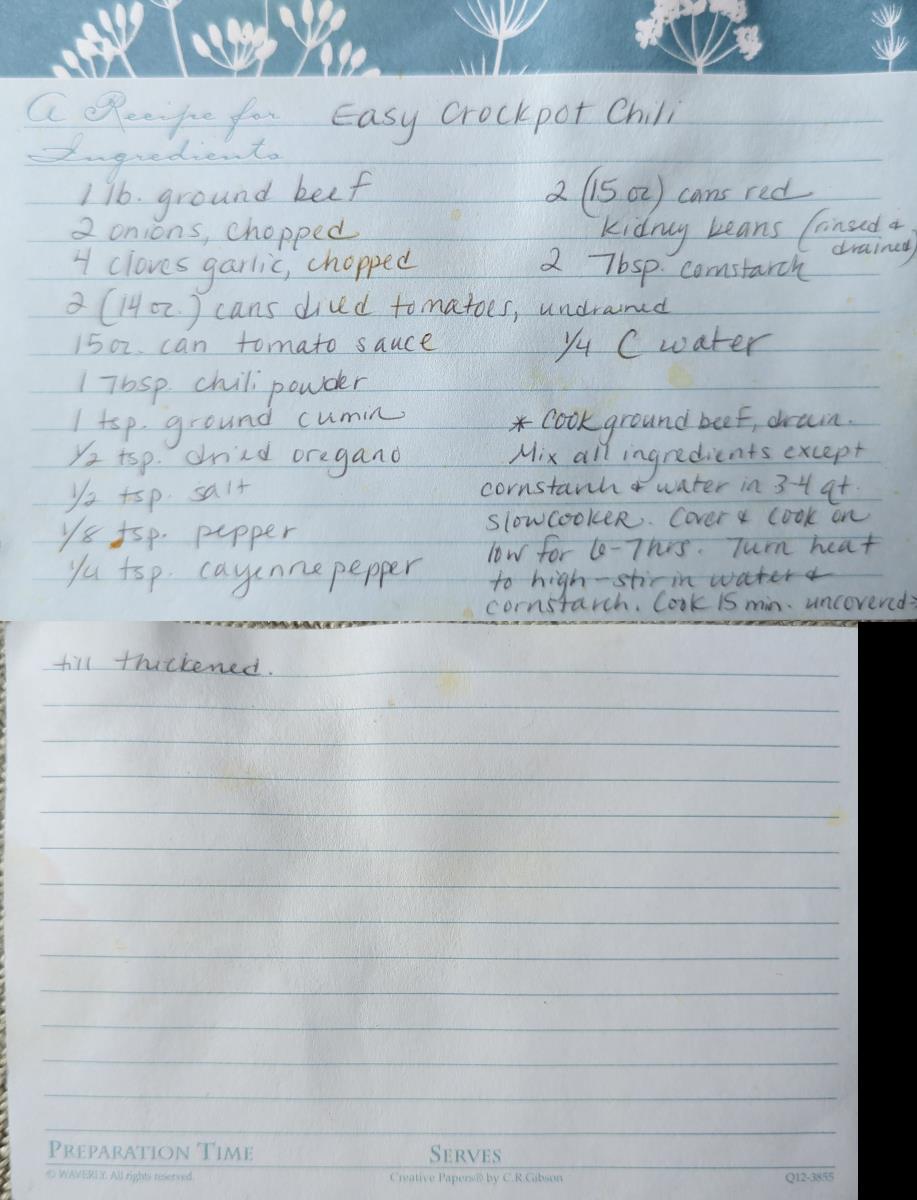 A Recipe for Easy Crockpot Chili
Ingredients
1 lb. ground beef
2 onions, chopped
4 cloves garlic, chopped
2 (14 oz.) cans diced tomatoes, undrained
15 oz. can tomato sauce
1 Tbsp. chili powder
1 tsp. ground cumin
1/2 tsp. dried oregano
1/2 tsp. salt
1/8 tsp. pepper
1/4 tsp. cayenne pepper
2 (15 oz) cans red
kidney beans (rinsed &
drained)
2 Tbsp. cornstarch
1/4 C water
* Cook ground beef, drain.
Mix all ingredients except
cornstarch & water in 3-4 qt.
slowcooker. Cover & cook on
low for 6-7 hrs. Turn heat
to high - stir in water &
cornstarch. Cook 15 min. uncovered
till thickened.
PREPARATION TIME SERVES
© WAVERLY. All rights reserved. Creative Papers® by C.R.Gibson Q12-3855